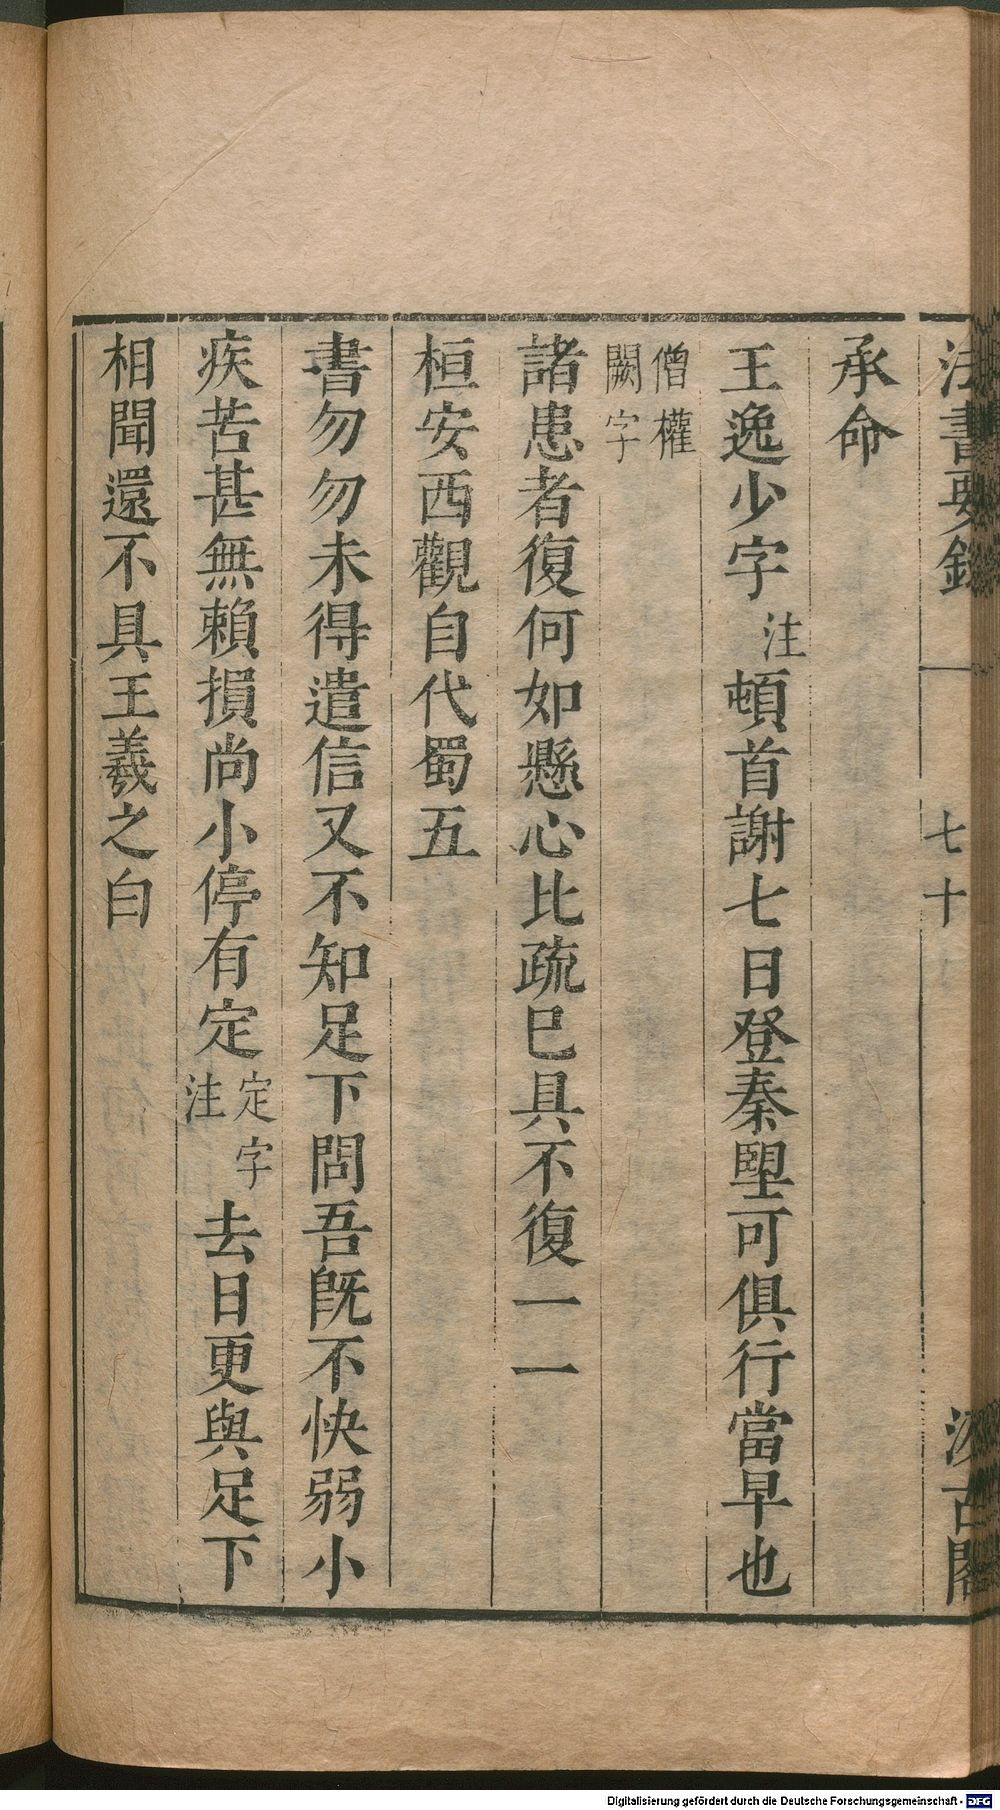 法書要錄
七十
汲古閣
承命
王逸少字注頓首謝七日登秦朢可俱行當早也
僧權
闕字
諸患者復何如懸心比疏巳具不復一一
桓安西觀自代蜀五
書勿勿未得遣信又不知足下問吾旣不快弱小
疾苦甚無賴損尚小停有定定字注去日更與足下
相聞還不具王羲之白
Digitalisierung gefördert durch die Deutsche Forschungsgemeinschaft - DFG